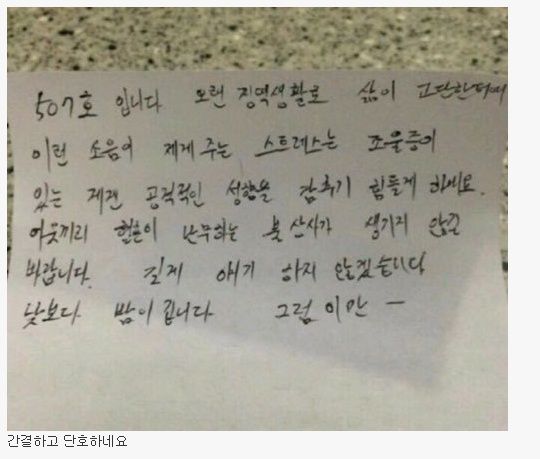 507호 입니다 오랜 징역생활로 삶이 고단한데
이런 소음이 제게 주는 스트레스는 조울증이
있는 제겐 공격적인 성향을 감추기 힘들게 하네요.
이웃끼리 혈흔이 난무하는 불상사가 생기지 않길
바랍니다. 길게 얘기 하지 않겠습니다
낮보다 밤이 깁니다 그럼 이만 ㅡ
간결하고 단호하네요